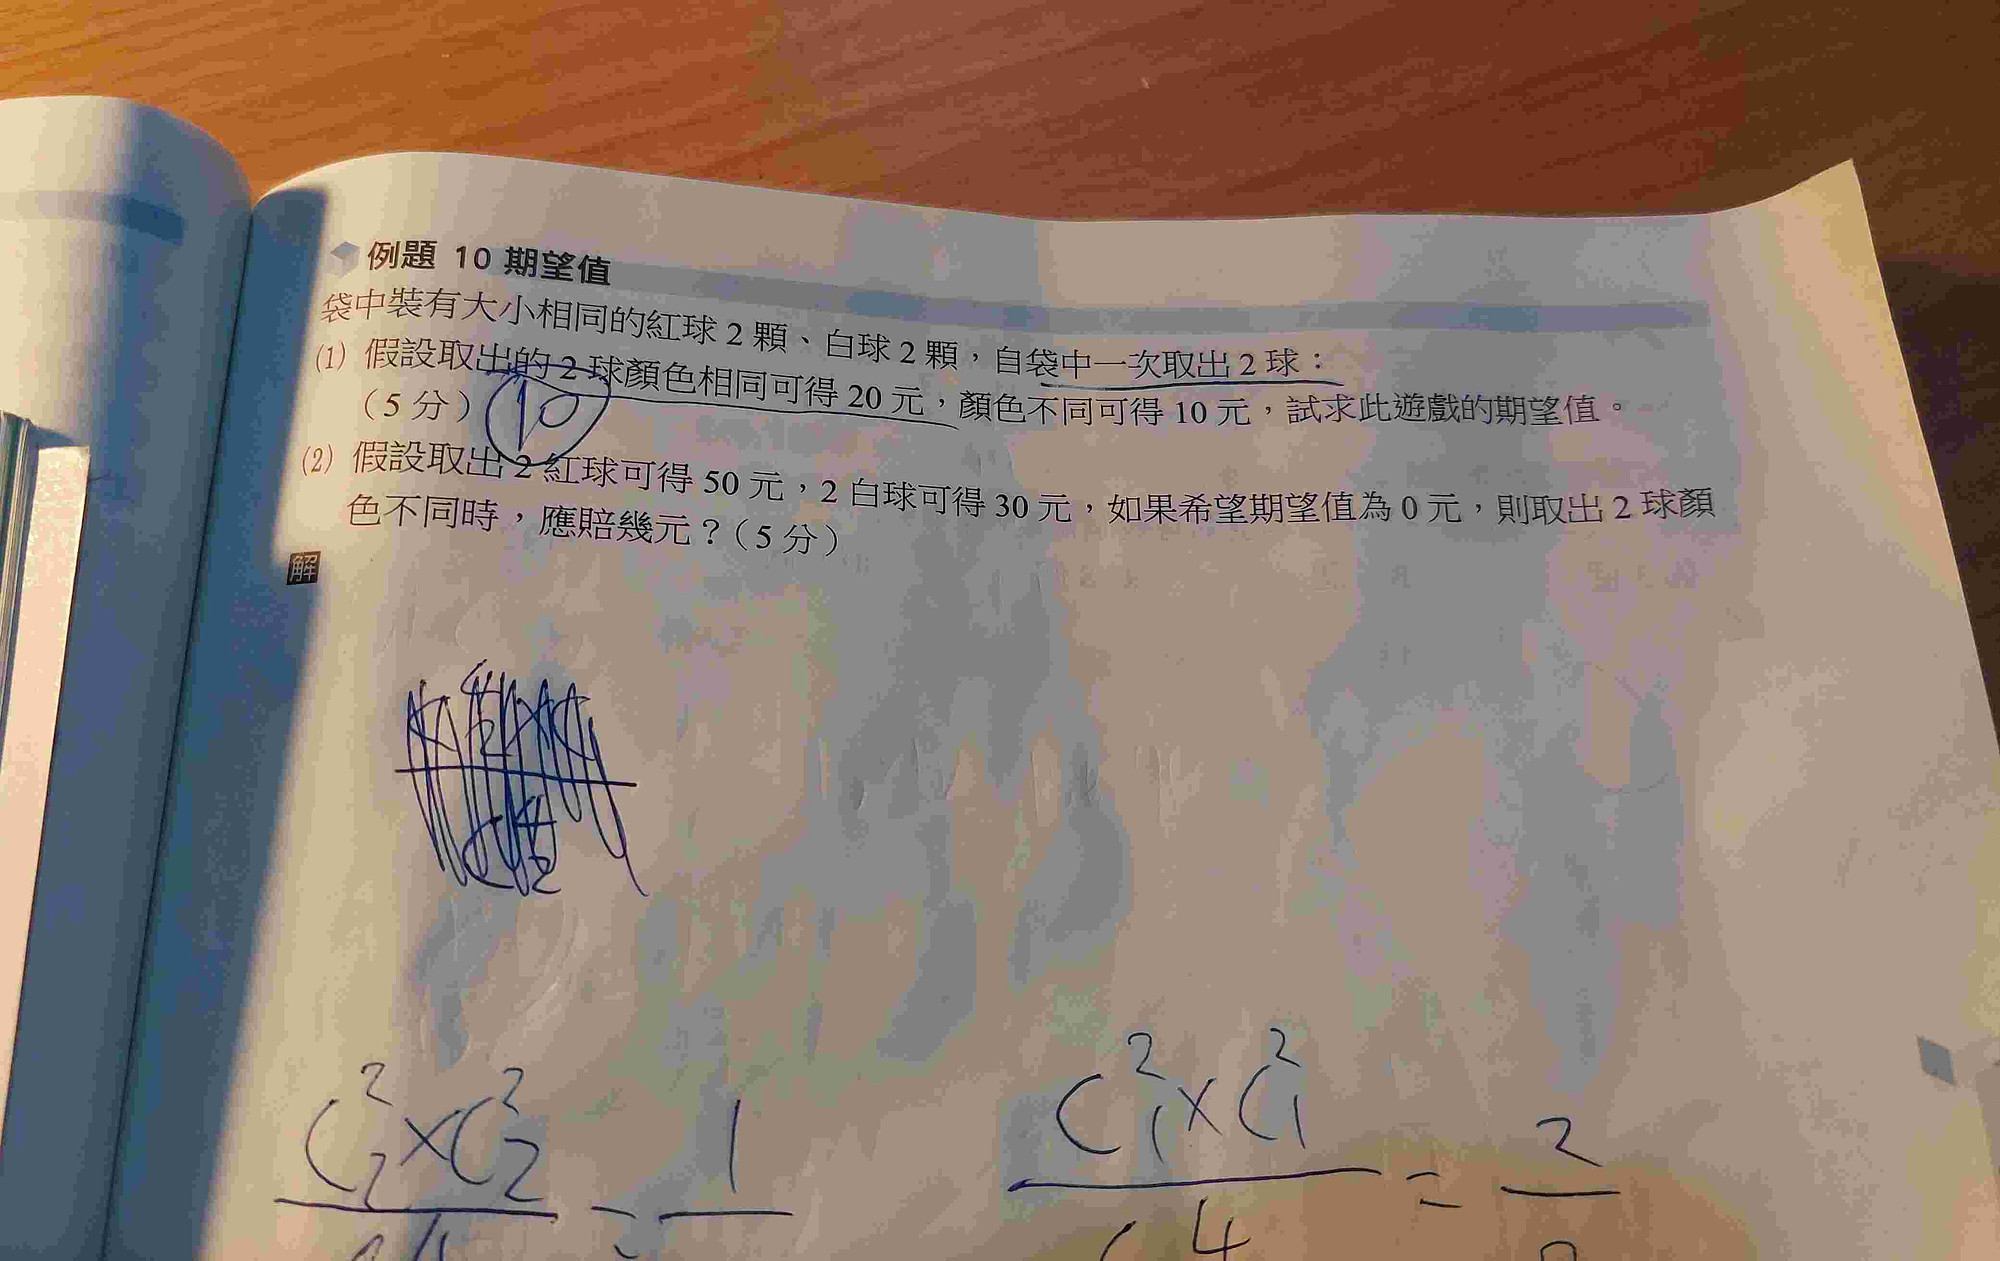 例題 10 期望值
袋中裝有大小相同的紅球 2 顆、白球 2 顆，自袋中一次取出 2 球：
(1) 假設取出的 2 球顏色相同可得 20 元，顏色不同可得 10 元，試求此遊戲的期望值。
（5 分）
10
(2) 假設取出 2 紅球可得 50 元，2 白球可得 30 元，如果希望期望值為 0 元，則取出 2 球顏
色不同時，應賠幾元？（5 分）
解
C²₂×C²₂ = 1
C²₁×C²₁ / C4 = 2